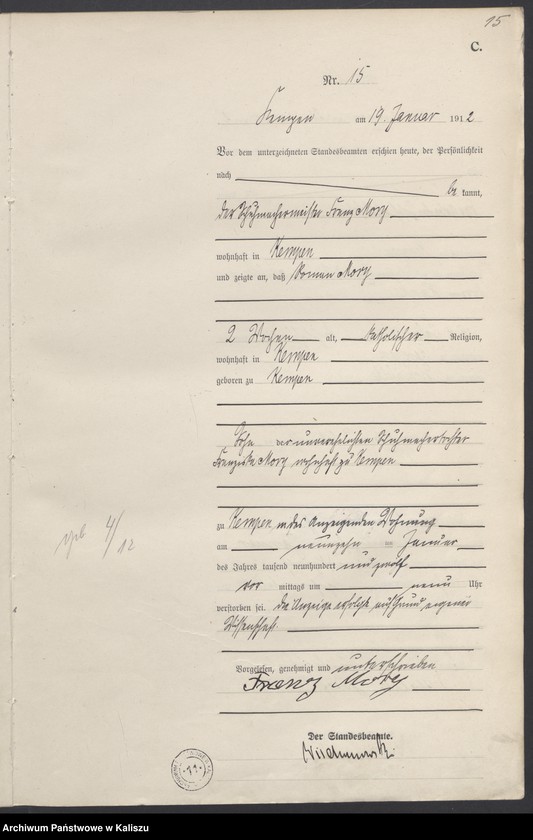 15
C.
Nr. 15
Kempen am 19. Januar 1912
Vor dem unterzeichneten Standesbeamten erschien heute, der Persönlichkeit
nach
be kannt,
der Schuhmachermeister Franz Mory
wohnhaft in Kempen
und zeigte an, daß Roman Mory
2 Wochen alt, katholischer Religion,
wohnhaft in Kempen
geboren zu Kempen
Sohn der unverehelichten Schuhmachertochter
Franziska Mory wohnhaft zu Kempen
zu Kempen in des Anzeigenden Wohnung
am neunzehn Januar
des Jahres tausend neunhundert und zwölf
vor mittags um neun Uhr
verstorben sei. Die Anzeige erfolgte auf Grund eigener
Wissenschaft.
geb 4/12
Vorgelesen, genehmigt und unterschrieben
Franz Mory
Der Standesbeamte.
11
Archiwum Państwowe w Kaliszu